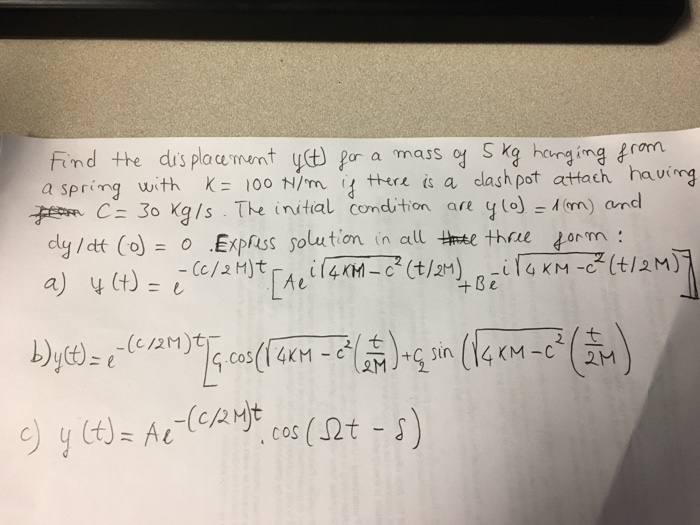 Find the displacement y(t) for a mass of 5 kg hanging from
a spring with K = 100 N/m if there is a dashpot attach having
C = 30 kg/s. The initial condition are y(0) = 1(m) and
dy/dt (0) = 0. Express solution in all three form:
a) y(t) = e^-(C/2M)t [Ae^i√(4KM-c²)(t/2M) + Be^-i√(4KM-c²)(t/2M)]
b) y(t) = e^-(C/2M)t [C₁ cos(√(4KM-c²)(t/2M) + C₂ sin(√(4KM-c²)(t/2M)
c) y(t) = Ae^-(C/2M)t . cos(Ωt - δ)